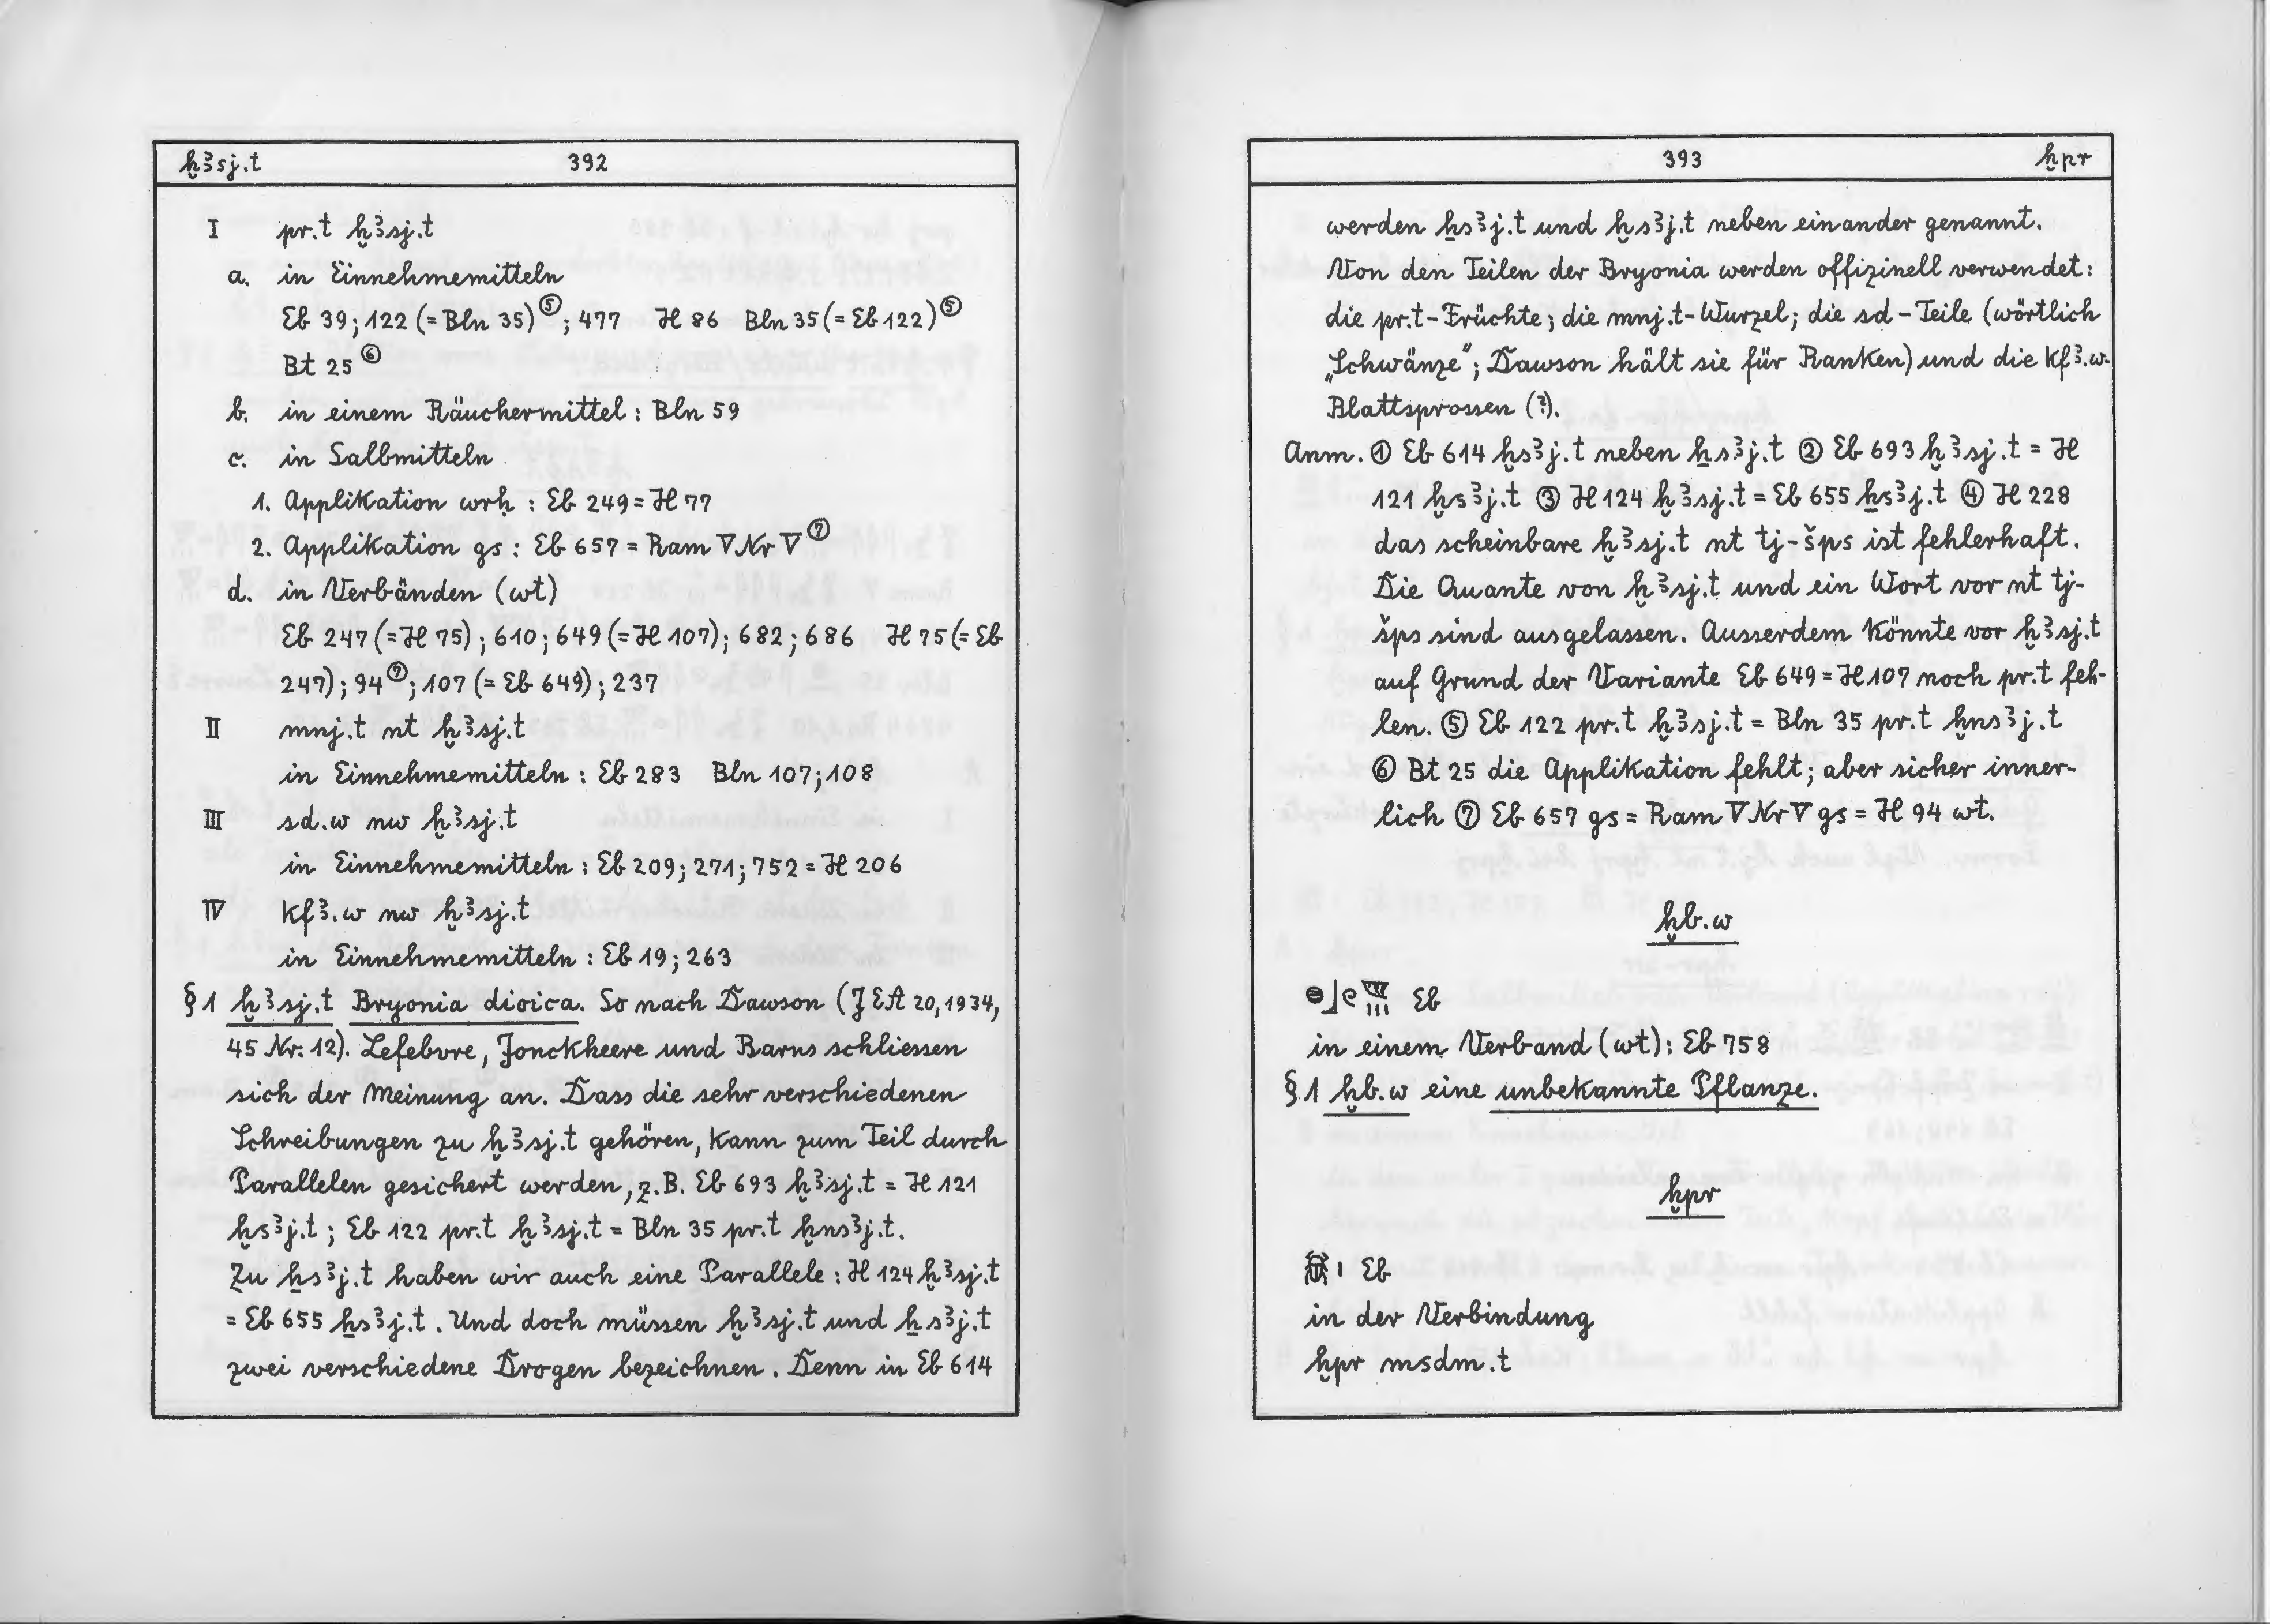 ḫꜣsj.t 392
I pr.t ḫꜣsj.t
a. in Einnehmemitteln
Eb 39; 122 (= Bln 35)⑤; 477 H 86 Bln 35 (= Eb 122)⑤
Bt 25⑥
b. in einem Räuchermittel: Bln 59
c. in Salbmitteln
1. Applikation wrḥ: Eb 249 = H 77
2. Applikation gs: Eb 657 = Ram V Nr V⑦
d. in Verbänden (wt)
Eb 247 (= H 75); 610; 649 (= H 107); 682; 686 H 75 (= Eb
247); 94⑦; 107 (= Eb 649); 237
II mnj.t nt ḫꜣsj.t
in Einnehmemitteln: Eb 283 Bln 107; 108
III sd.w nw ḫꜣsj.t
in Einnehmemitteln: Eb 209; 271; 752 = H 206
IV kfꜣ.w nw ḫꜣsj.t
in Einnehmemitteln: Eb 19; 263
§ 1 ḫꜣsj.t Bryonia dioica. So nach Dawson (JEA 20, 1934,
45 Nr. 12). Lefebvre, Jonckheere und Barns schliessen
sich der Meinung an. Dass die sehr verschiedenen
Schreibungen zu ḫꜣsj.t gehören, kann zum Teil durch
Parallelen gesichert werden, z.B. Eb 693 ḫꜣsj.t = H 121
ḫsꜣj.t; Eb 122 pr.t ḫꜣsj.t = Bln 35 pr.t ḫnsꜣj.t.
Zu ẖsꜣj.t haben wir auch eine Parallele: H 124 ḫꜣsj.t
= Eb 655 ẖsꜣj.t. Und doch müssen ḫꜣsj.t und ẖsꜣj.t
zwei verschiedene Drogen bezeichnen. Denn in Eb 614
393 ḫpr
werden ẖsꜣj.t und ḫsꜣj.t neben einander genannt.
Von den Teilen der Bryonia werden offizinell verwendet:
die pr.t-Früchte; die mnj.t-Wurzel; die sd-Teile (wörtlich
„Schwänze"; Dawson hält sie für Ranken) und die kfꜣ.w-
Blattsprossen (?).
Anm. ① Eb 614 ḫsꜣj.t neben ẖsꜣj.t ② Eb 693 ḫꜣsj.t = H
121 ḫsꜣj.t ③ H 124 ḫꜣsj.t = Eb 655 ẖsꜣj.t ④ H 228
das scheinbare ḫꜣsj.t nt tj-šps ist fehlerhaft.
Die Quante von ḫꜣsj.t und ein Wort vor nt tj-
šps sind ausgelassen. Ausserdem könnte vor ḫꜣsj.t
auf Grund der Variante Eb 649 = H 107 noch pr.t feh-
len. ⑤ Eb 122 pr.t ḫꜣsj.t = Bln 35 pr.t ḫnsꜣj.t
⑥ Bt 25 die Applikation fehlt; aber sicher inner-
lich ⑦ Eb 657 gs = Ram V Nr V gs = H 94 wt.
ḫb.w
𓐍𓃀𓏲𓆰𓏥 Eb
in einem Verband (wt): Eb 758
§ 1 ḫb.w eine unbekannte Pflanze.
ḫpr
𓆣𓏤 Eb
in der Verbindung
ḫpr msdm.t